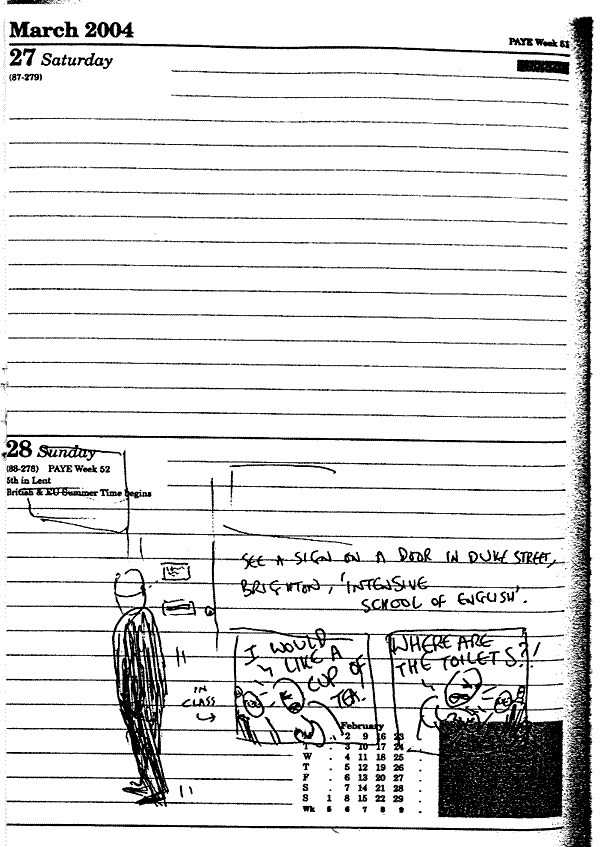 March 2004
PAYE Week 51
27 Saturday
(87-279)
28 Sunday
(88-278) PAYE Week 52
5th in Lent
British & EU Summer Time begins
SEE A SIGN ON A DOOR IN DUKE STREET,
BRIGHTON, 'INTENSIVE
SCHOOL OF ENGLISH'.
IN
CLASS
I WOULD
LIKE A
CUP OF
TEA!
WHERE ARE
THE TOILETS?!
February
M . 2 9 16 23
T . 3 10 17 24
W . 4 11 18 25
T . 5 12 19 26
F . 6 13 20 27
S . 7 14 21 28
S 1 8 15 22 29
Wk 5 6 7 8 9